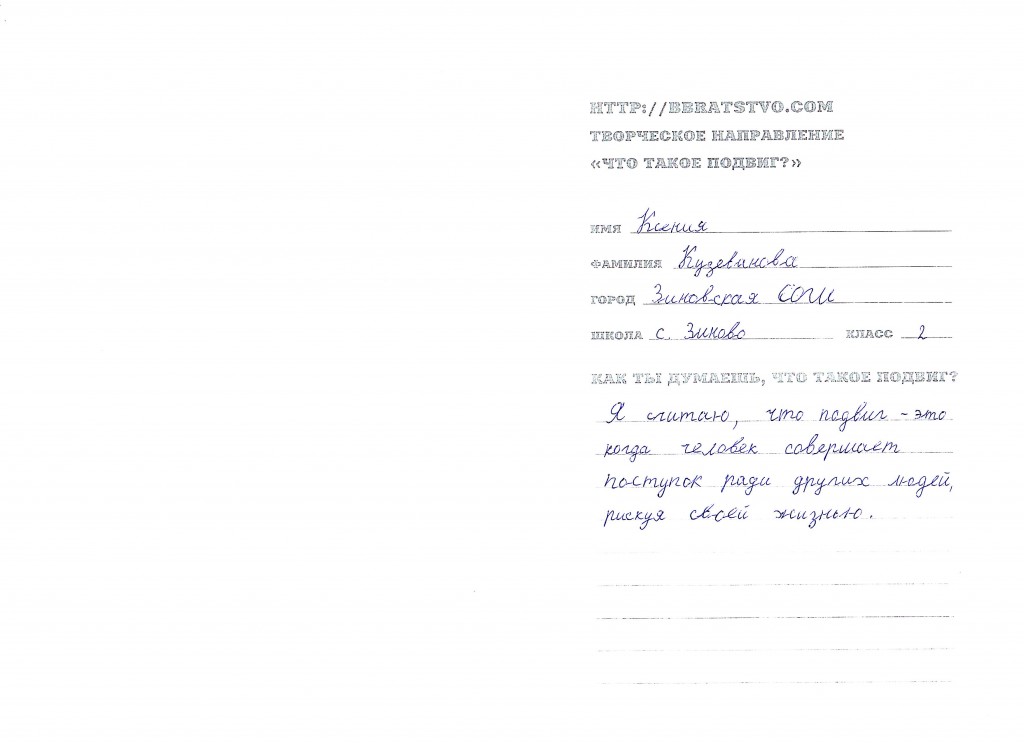 HTTP://BBRATSTVO.COM
ТВОРЧЕСКОЕ НАПРАВЛЕНИЕ
«ЧТО ТАКОЕ ПОДВИГ?»
ИМЯ Ксения
ФАМИЛИЯ Кузевинова
ГОРОД Зиновская СОШ
ШКОЛА с. Зиново КЛАСС 2
КАК ТЫ ДУМАЕШЬ, ЧТО ТАКОЕ ПОДВИГ?
Я считаю, что подвиг - это
когда человек совершает
поступок ради других людей,
рискуя своей жизнью.